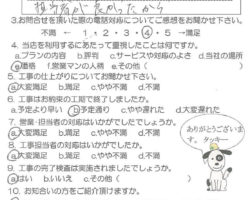 担当者が良かったから
3.お問合せを頂いた際の電話対応についてご感想をお聞かせ下さい。
不満 ← 1・2・3・④・5 →満足
4. 当店を利用するにあたって重視したことは何ですか。
a.プランの内容 b.評判 c.サービスや対応のよさ d.当社の場所
e.価格 f.営業マンの人柄 e.その他( )
5. 工事の仕上がりについてお聞かせください。
a.大変満足 b.満足 c.やや不満 d.不満
6. 工事はお約束の工期で終了しましたか。
a.予定より早い b.予定通り c.やや遅れた d.大変遅れた
7. 営業・担当者の対応はいかがでしたか。
a.大変満足 b.満足 c.やや不満 d.不満
8. 工事担当者の対応はいかがでしたか。
a.大変満足 b.満足 c.やや不満 d.不満
9. 工事の完了検査は実施されましたでしょうか。
a.はい b.いいえ c.その他( )
10. お知り合いの方をご紹介頂けますか。
ありがとうございます。
タッキー